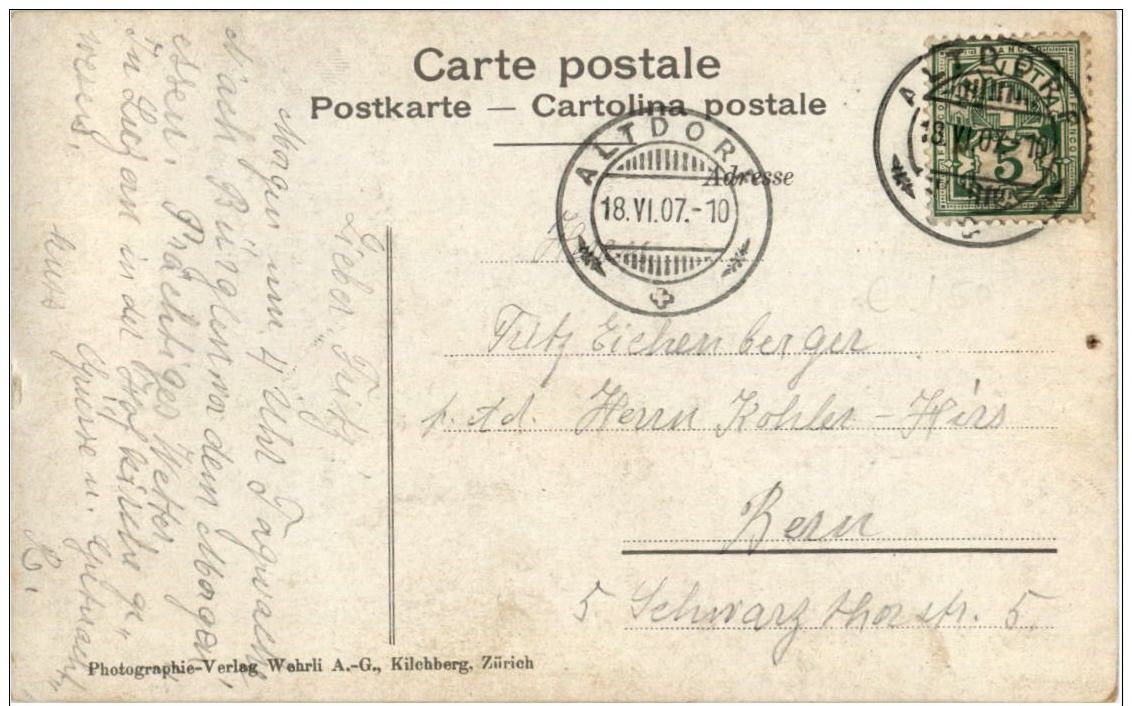 Carte postale
Postkarte — Cartolina postale
Adresse
ALTDORF
18.VI.07.-10
ALTDORF
18.VI.07.-10
5
Herrn
Fritz Eichenberger
p. Ad. Herrn Kohler-Hirs
Bern
5 Schwarzthorstr. 5.
Lieber Fritz!
Morgen um 4 Uhr Tagwach
Nach Bürglen vor dem Morgen
essen. Prächtiges Wetter,
In Luzern in der Hofkirche ge„
wesen.
Kuss Grüsse u.
R.
Photographie-Verlag Wehrli A.-G., Kilchberg, Zürich